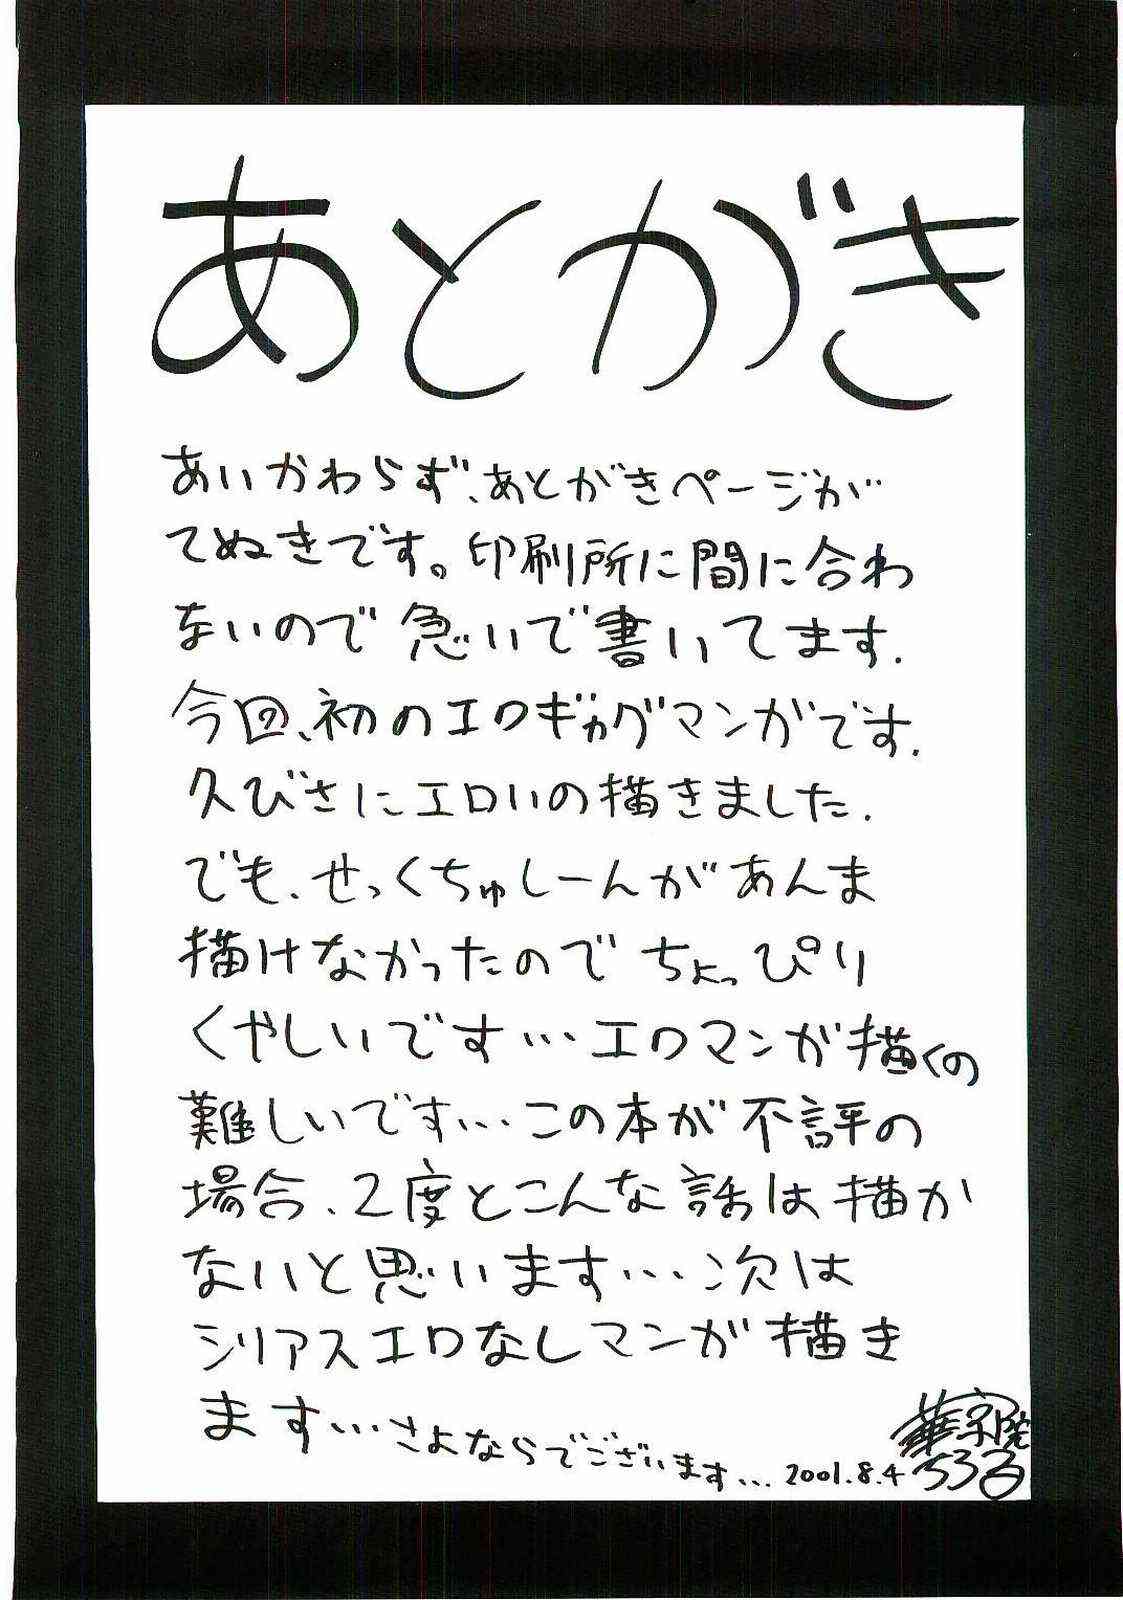 あとがき
あいかわらず、あとがきページが
てぬきです。印刷所に間に合わ
ないので急いで書いてます.
今回、初のエロギャグマンガです.
久びさにエロいの描きました.
でも、せっくちゅしーんがあんま
描けなかったのでちょっぴり
くやしいです…エロマンが描くの
難しいです…この本が不評の
場合、2度とこんな話は描か
ないと思います…次は
シリアスエロなしマンガ描き
ます…さよならでございます…
2001.8.4